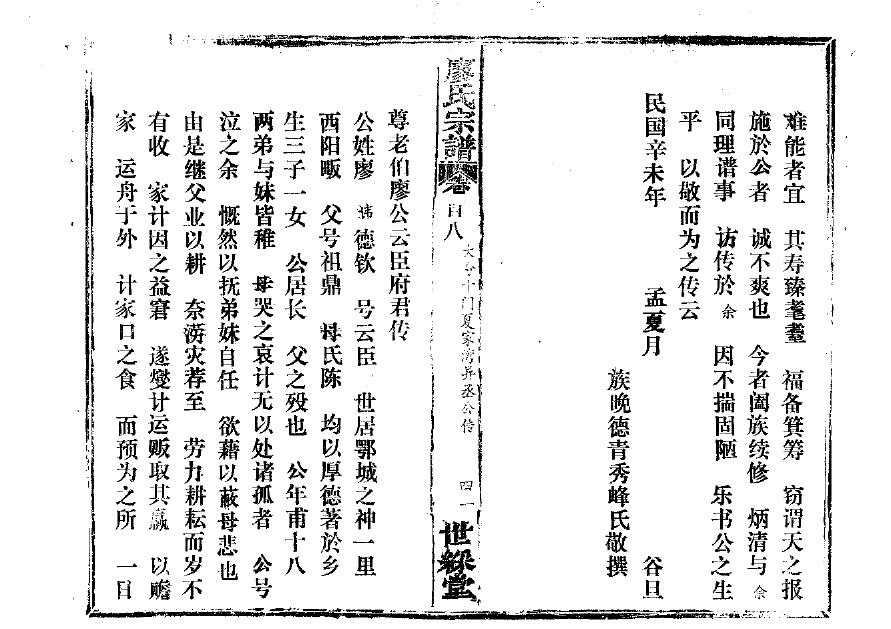 难能者宜 其寿臻耄耋 福备箕筹 窃谓天之报
施於公者 诚不爽也 今者阖族续修 炳清与 余
同理谱事 访传於 余 因不揣固陋 乐书公之生
平 以敬而为之传云
民国辛未年 孟夏月 谷旦
族晚德青秀峰氏敬撰
廖氏宗譜 卷 百八 大 小门夏家湾 丞公传 四一 世綵堂
尊老伯廖公云臣府君传
公姓廖 讳 德钦 号云臣 世居鄂城之神一里
西阳畈 父号祖鼎 母氏陈 均以厚德著於乡
生三子一女 公居长 父之殁也 公年甫十八
两弟与妹皆稚 母哭之哀计无以处诸孤者 公号
泣之余 慨然以抚弟妹自任 欲藉以蔽母悲也
由是继父业以耕 奈涝灾荐至 劳力耕耘而岁不
有收 家计因之益窘 遂燮计运贩取其赢 以赡
家 运舟于外 计家口之食 而预为之所 一日